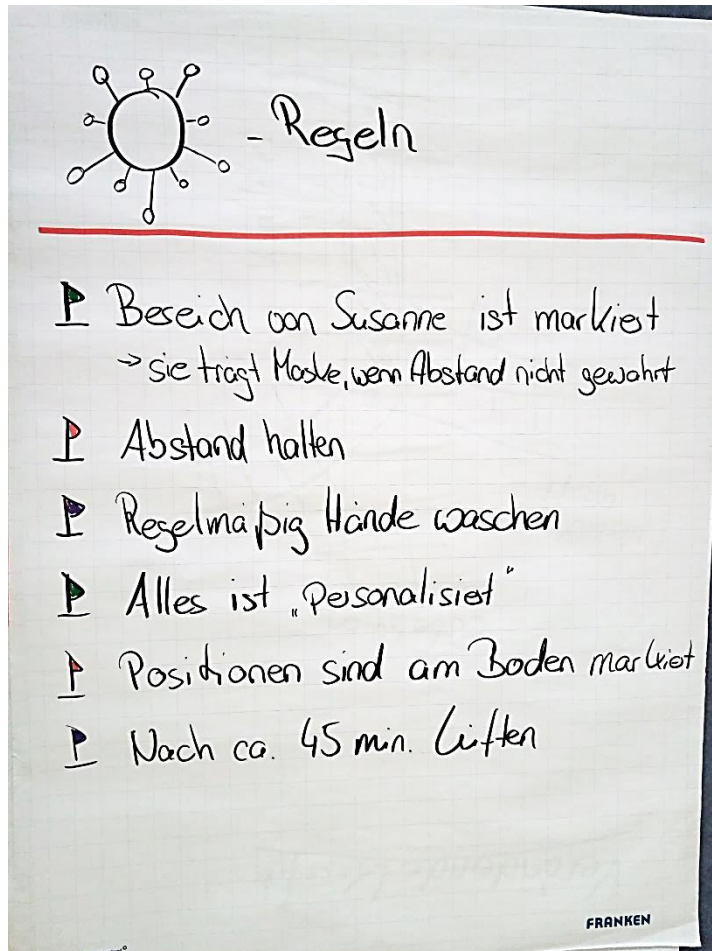 - Regeln
Bereich von Susanne ist markiert
→ sie trägt Maske, wenn Abstand nicht gewahrt
Abstand halten
Regelmäßig Hände waschen
Alles ist „Personalisiert“
Positionen sind am Boden markiert
Nach ca. 45 min. Lüften
FRANKEN